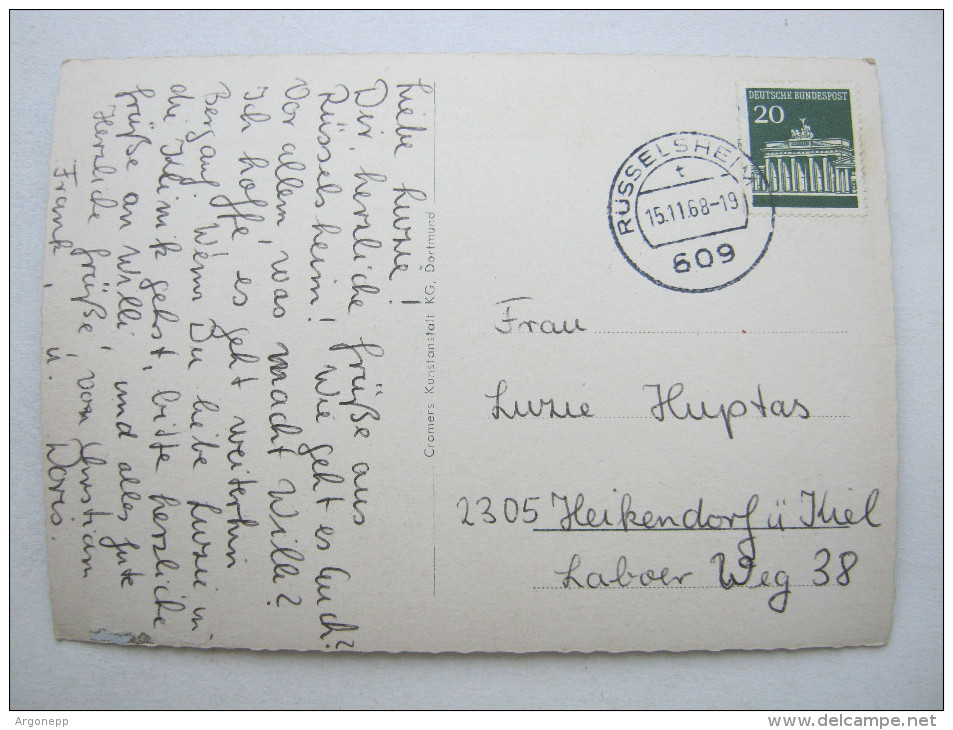 Liebe Luzie!
Dir, herzliche Grüße aus
Rüsselsheim! Wie geht es Euch?
Vor allem, was macht Willi?
Ich hoffe, es geht weiterhin
Bergauf, Wenn Du liebe Luzie in
die Klinik gehst, bitte herzliche
Grüße an Willi, und alles Gute
Herzliche Grüße, von Christiam
Frank, u. Doris.
Cramers Kunstanstalt KG, Dortmund
DEUTSCHE BUNDESPOST
20
RÜSSELSHEIM
t
15.11.68-19
609
Frau
Luzie Huptas
2305 Heikendorf ü Kiel
Laboer Weg 38
Argonepp
www.delcampe.net